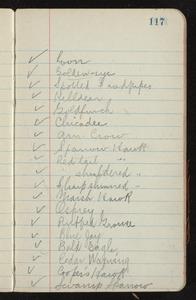 117
Coon
Golden-eye
Spotted Sandpiper
Killdeer
Goldfinch
Chicadee
Am. Crow
Sparrow Hawk
Red tail "
" shouldered "
Sharp shinned "
Marsh Hawk
Osprey
Ruffed Grouse
Blue Jay
Bald Eagle
Cedar Waxwing
Coopers Hawk
Swamp Sparrow